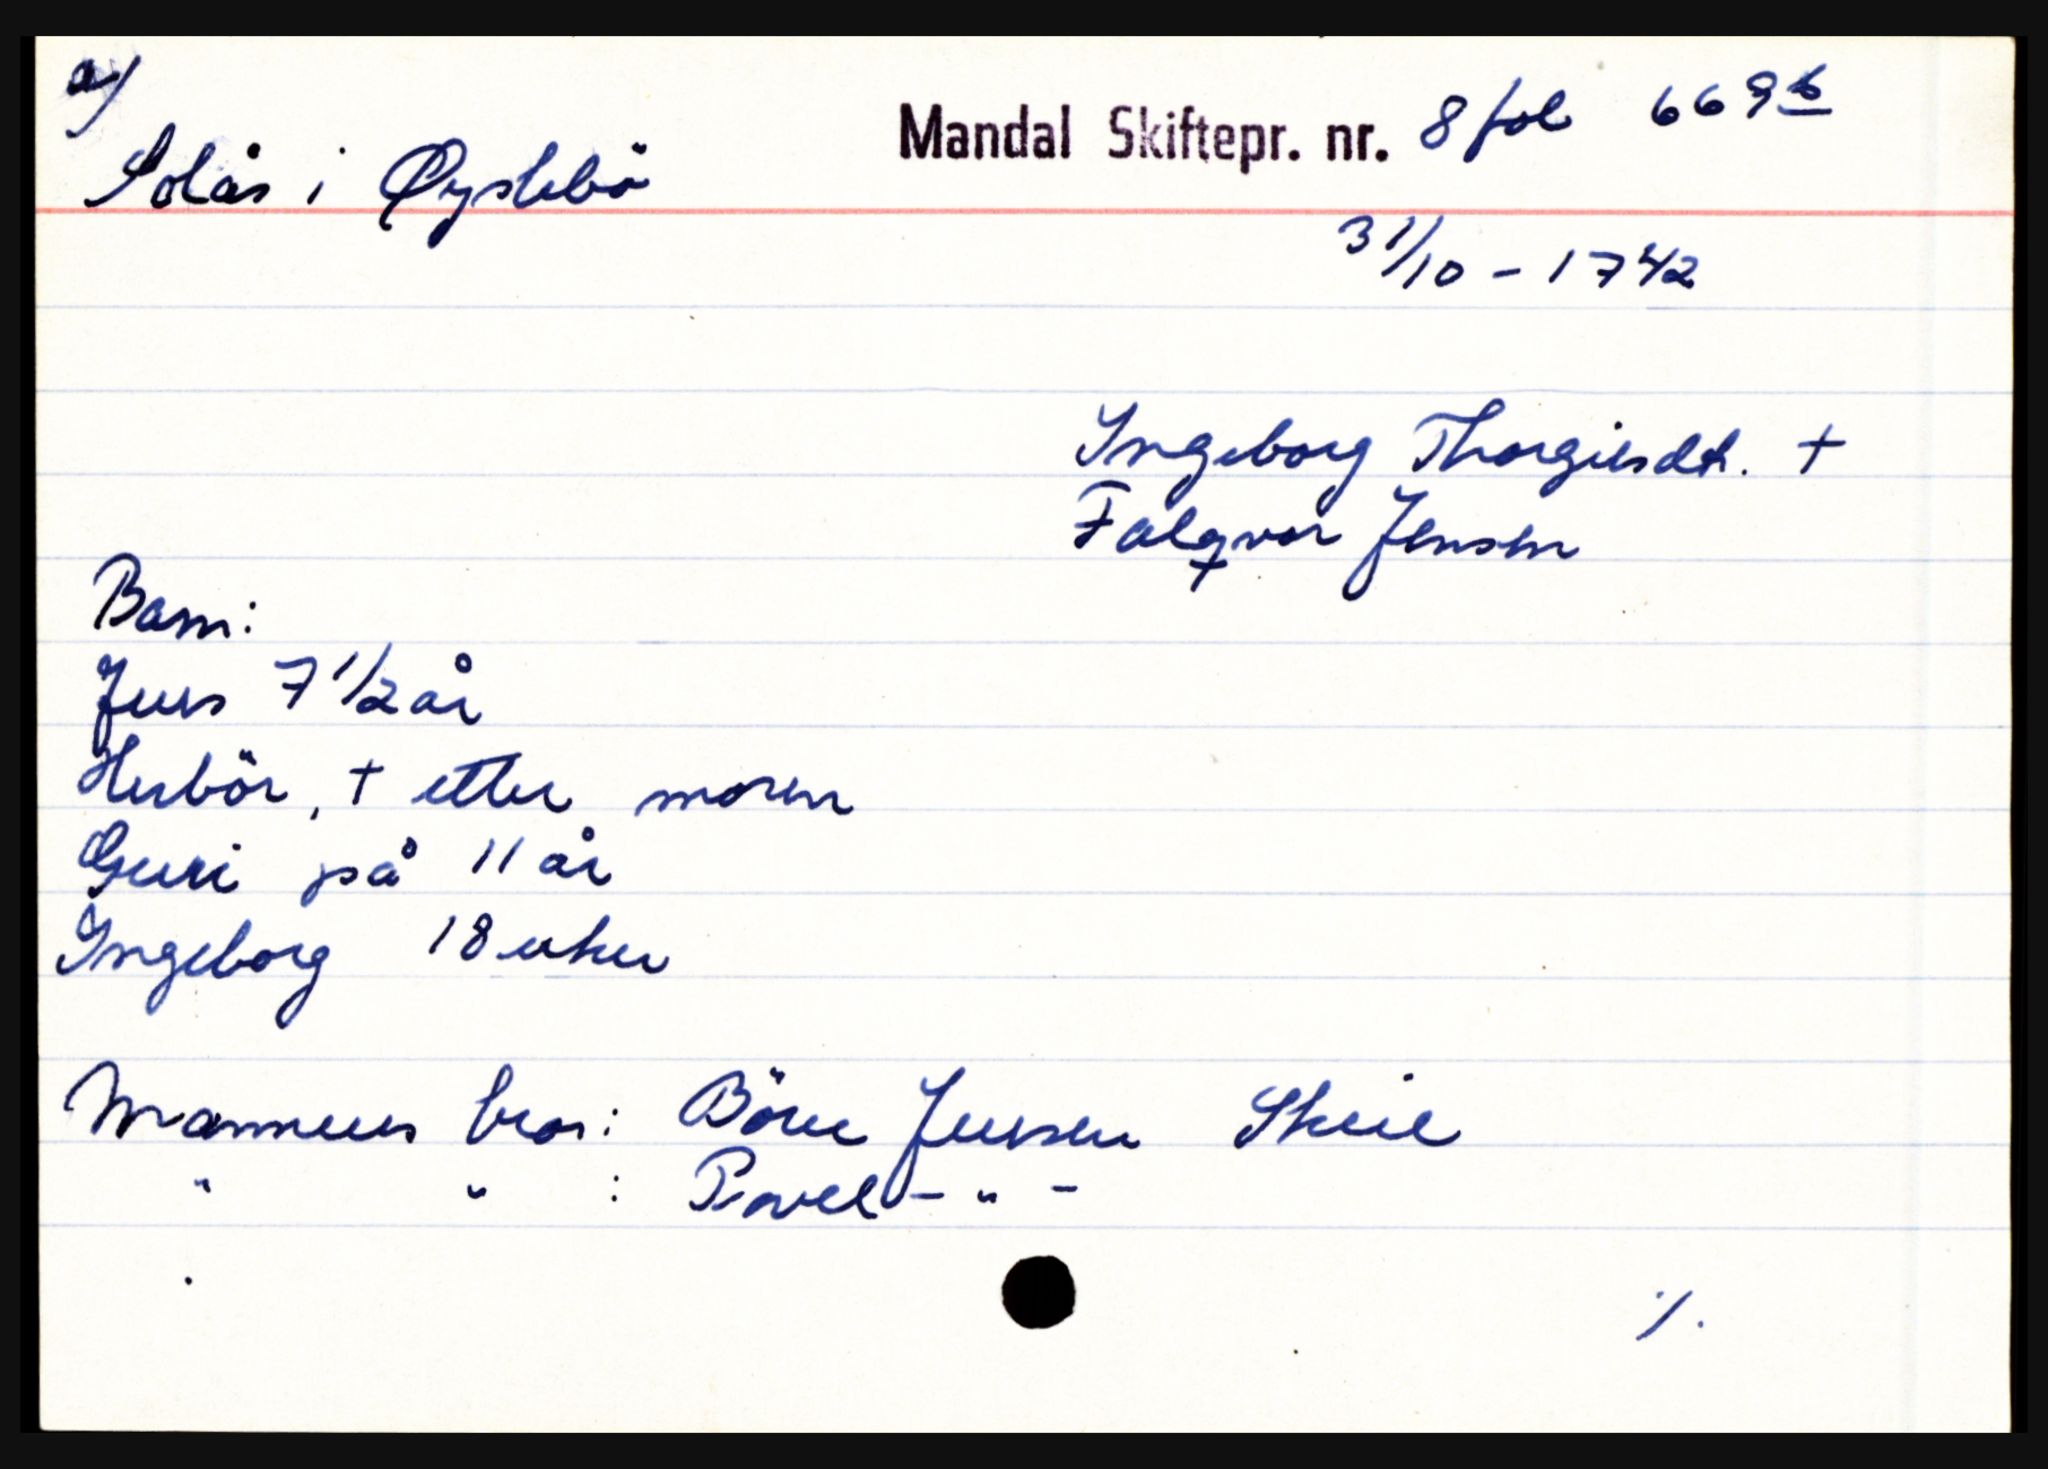 a/
Mandal Skiftepr. nr. 8 fol 669 b
Solås i Øyslebö
31/10 - 1742
Ingeborg Thorgiersdt. †
Falqvor Jensen
Barn:
Jens 7 1/2 år
Herbör, † etter moren
Guri på 11 år
Ingeborg 18 uker
Mannens bror: Börre Jensen Skeie
" " : Povel - " -
./.